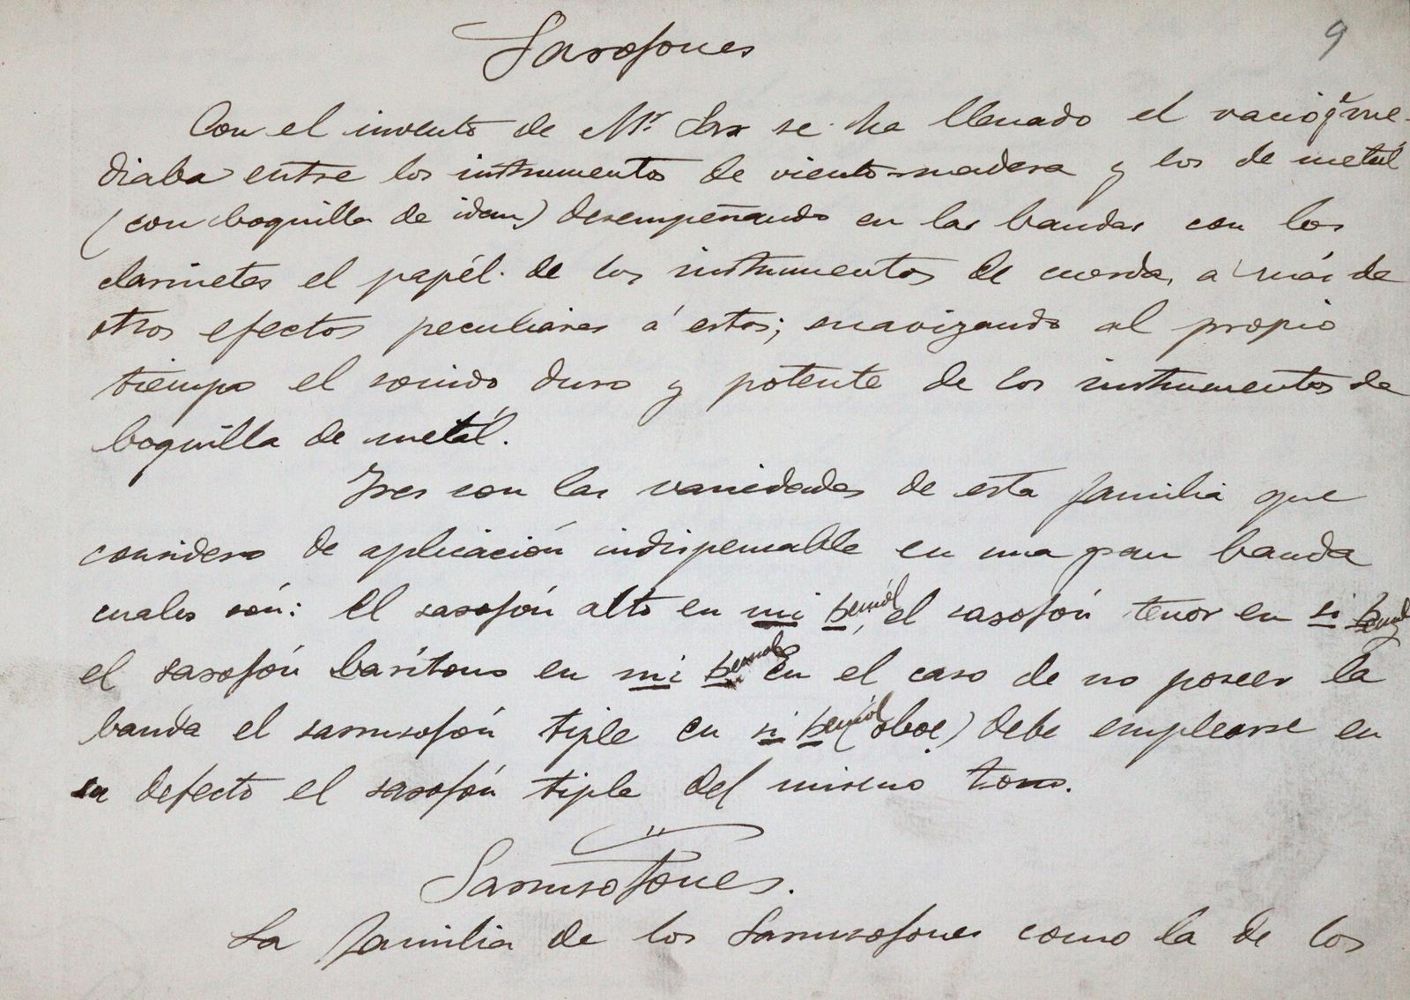 9
Saxofones
Con el invento de Mr. Sax se ha llenado el vacio q̃ me-
diaba entre los instrumentos de viento-madera y los de metal
(con boquilla de idem) desempeñando en las bandas con los
clarinetes el papél de los instrumentos de cuerda, a más de
otros efectos peculiares á estos; suavizando al propio
tiempo el sonido duro y potente de los instrumentos de
boquilla de metál.
Tres son las variedades de esta familia que
considero de aplicación indispensable en una gran banda
cuales són: el saxofón alto en mi bemól, el saxofón tenor en si bemol
el saxofón barítono en mi bemol. En el caso de no poseer la
banda el sarrusofón tiple en si bemól (oboe) debe emplearse en
su defecto el saxofón tiple del mismo tono.
Sarrusofones.
La familia de los Sarrusofones como la de los